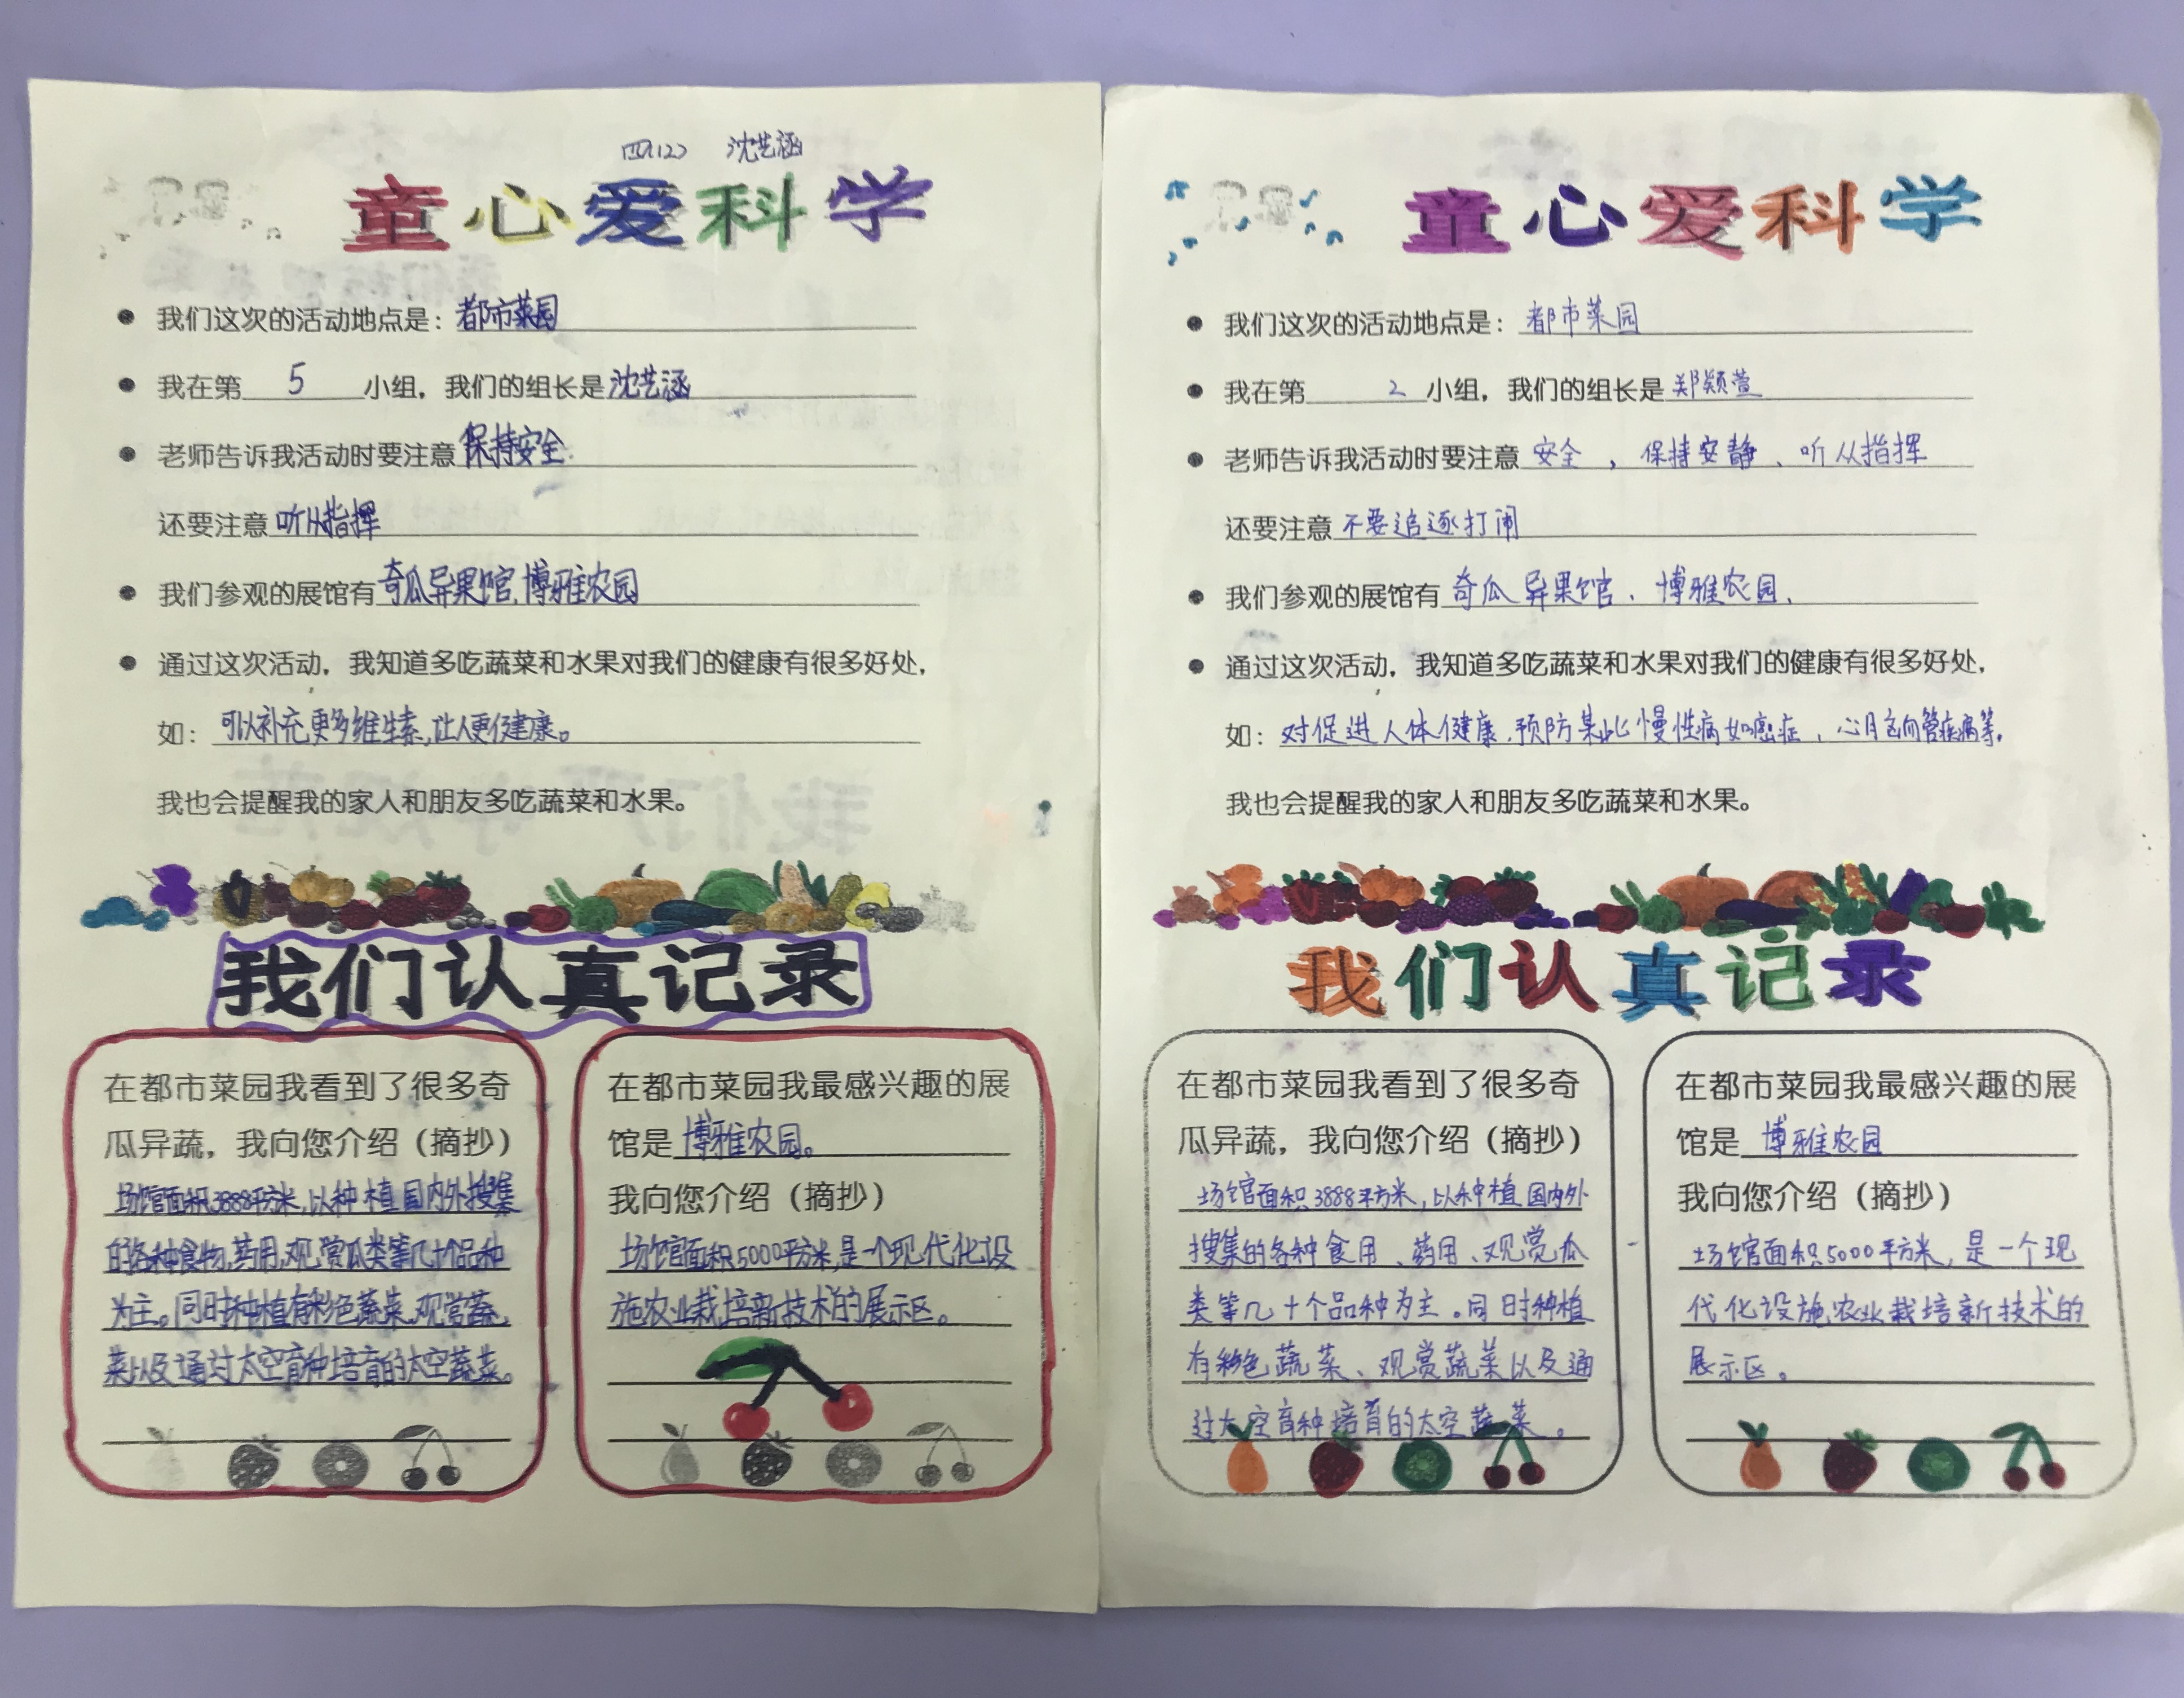 四(12) 沈艺涵
童心爱科学
我们这次的活动地点是：都市菜园
我在第5小组，我们的组长是沈艺涵
老师告诉我活动时要注意保持安全.
还要注意听从指挥
我们参观的展馆有奇瓜异果馆,博雅农园
通过这次活动，我知道多吃蔬菜和水果对我们的健康有很多好处，
如：可以补充更多维生素,让人更健康。
我也会提醒我的家人和朋友多吃蔬菜和水果。
我们认真记录
在都市菜园我看到了很多奇
瓜异蔬，我向您介绍（摘抄）
场馆面积3888平方米,以种植国内外搜集
的各种食物,药用,观赏瓜类等几十个品种
为主。同时种植有彩色蔬菜,观赏蔬
菜以及通过太空育种培育的太空蔬菜。
在都市菜园我最感兴趣的展
馆是博雅农园。
我向您介绍（摘抄）
场馆面积5000平方米,是一个现代化设
施农业栽培新技术的展示区。
童心爱科学
我们这次的活动地点是：都市菜园
我在第2小组，我们的组长是郑颖萱
老师告诉我活动时要注意安全，保持安静、听从指挥
还要注意不要追逐打闹
我们参观的展馆有奇瓜异果馆、博雅农园、
通过这次活动，我知道多吃蔬菜和水果对我们的健康有很多好处，
如：对促进人体健康,预防某些慢性病如癌症，心血管疾病等。
我也会提醒我的家人和朋友多吃蔬菜和水果。
我们认真记录
在都市菜园我看到了很多奇
瓜异蔬，我向您介绍（摘抄）
场馆面积3888平方米，以种植国内外
搜集的各种食用、药用、观赏瓜
类等几十个品种为主。同时种植
有彩色蔬菜、观赏蔬菜以及通
过太空育种培育的太空蔬菜。
在都市菜园我最感兴趣的展
馆是博雅农园
我向您介绍（摘抄）
场馆面积5000平方米，是一个现
代化设施农业栽培新技术的
展示区。